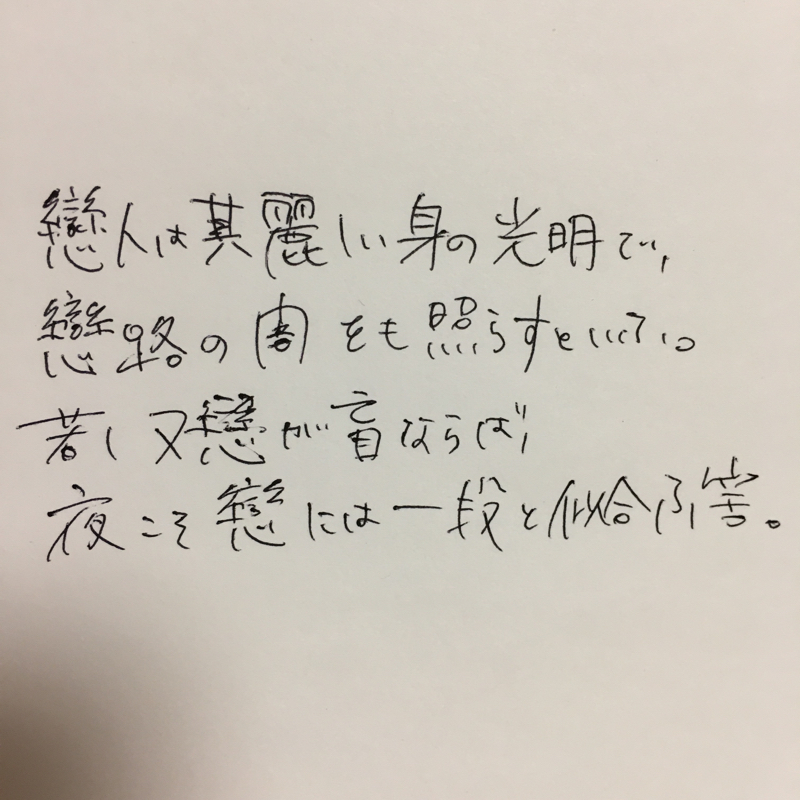 戀人は其麗しい身の光明で、
戀路の闇をも照らすといふ。
若し又戀が盲ならば、
夜こそ戀には一段と似合ふ筈。